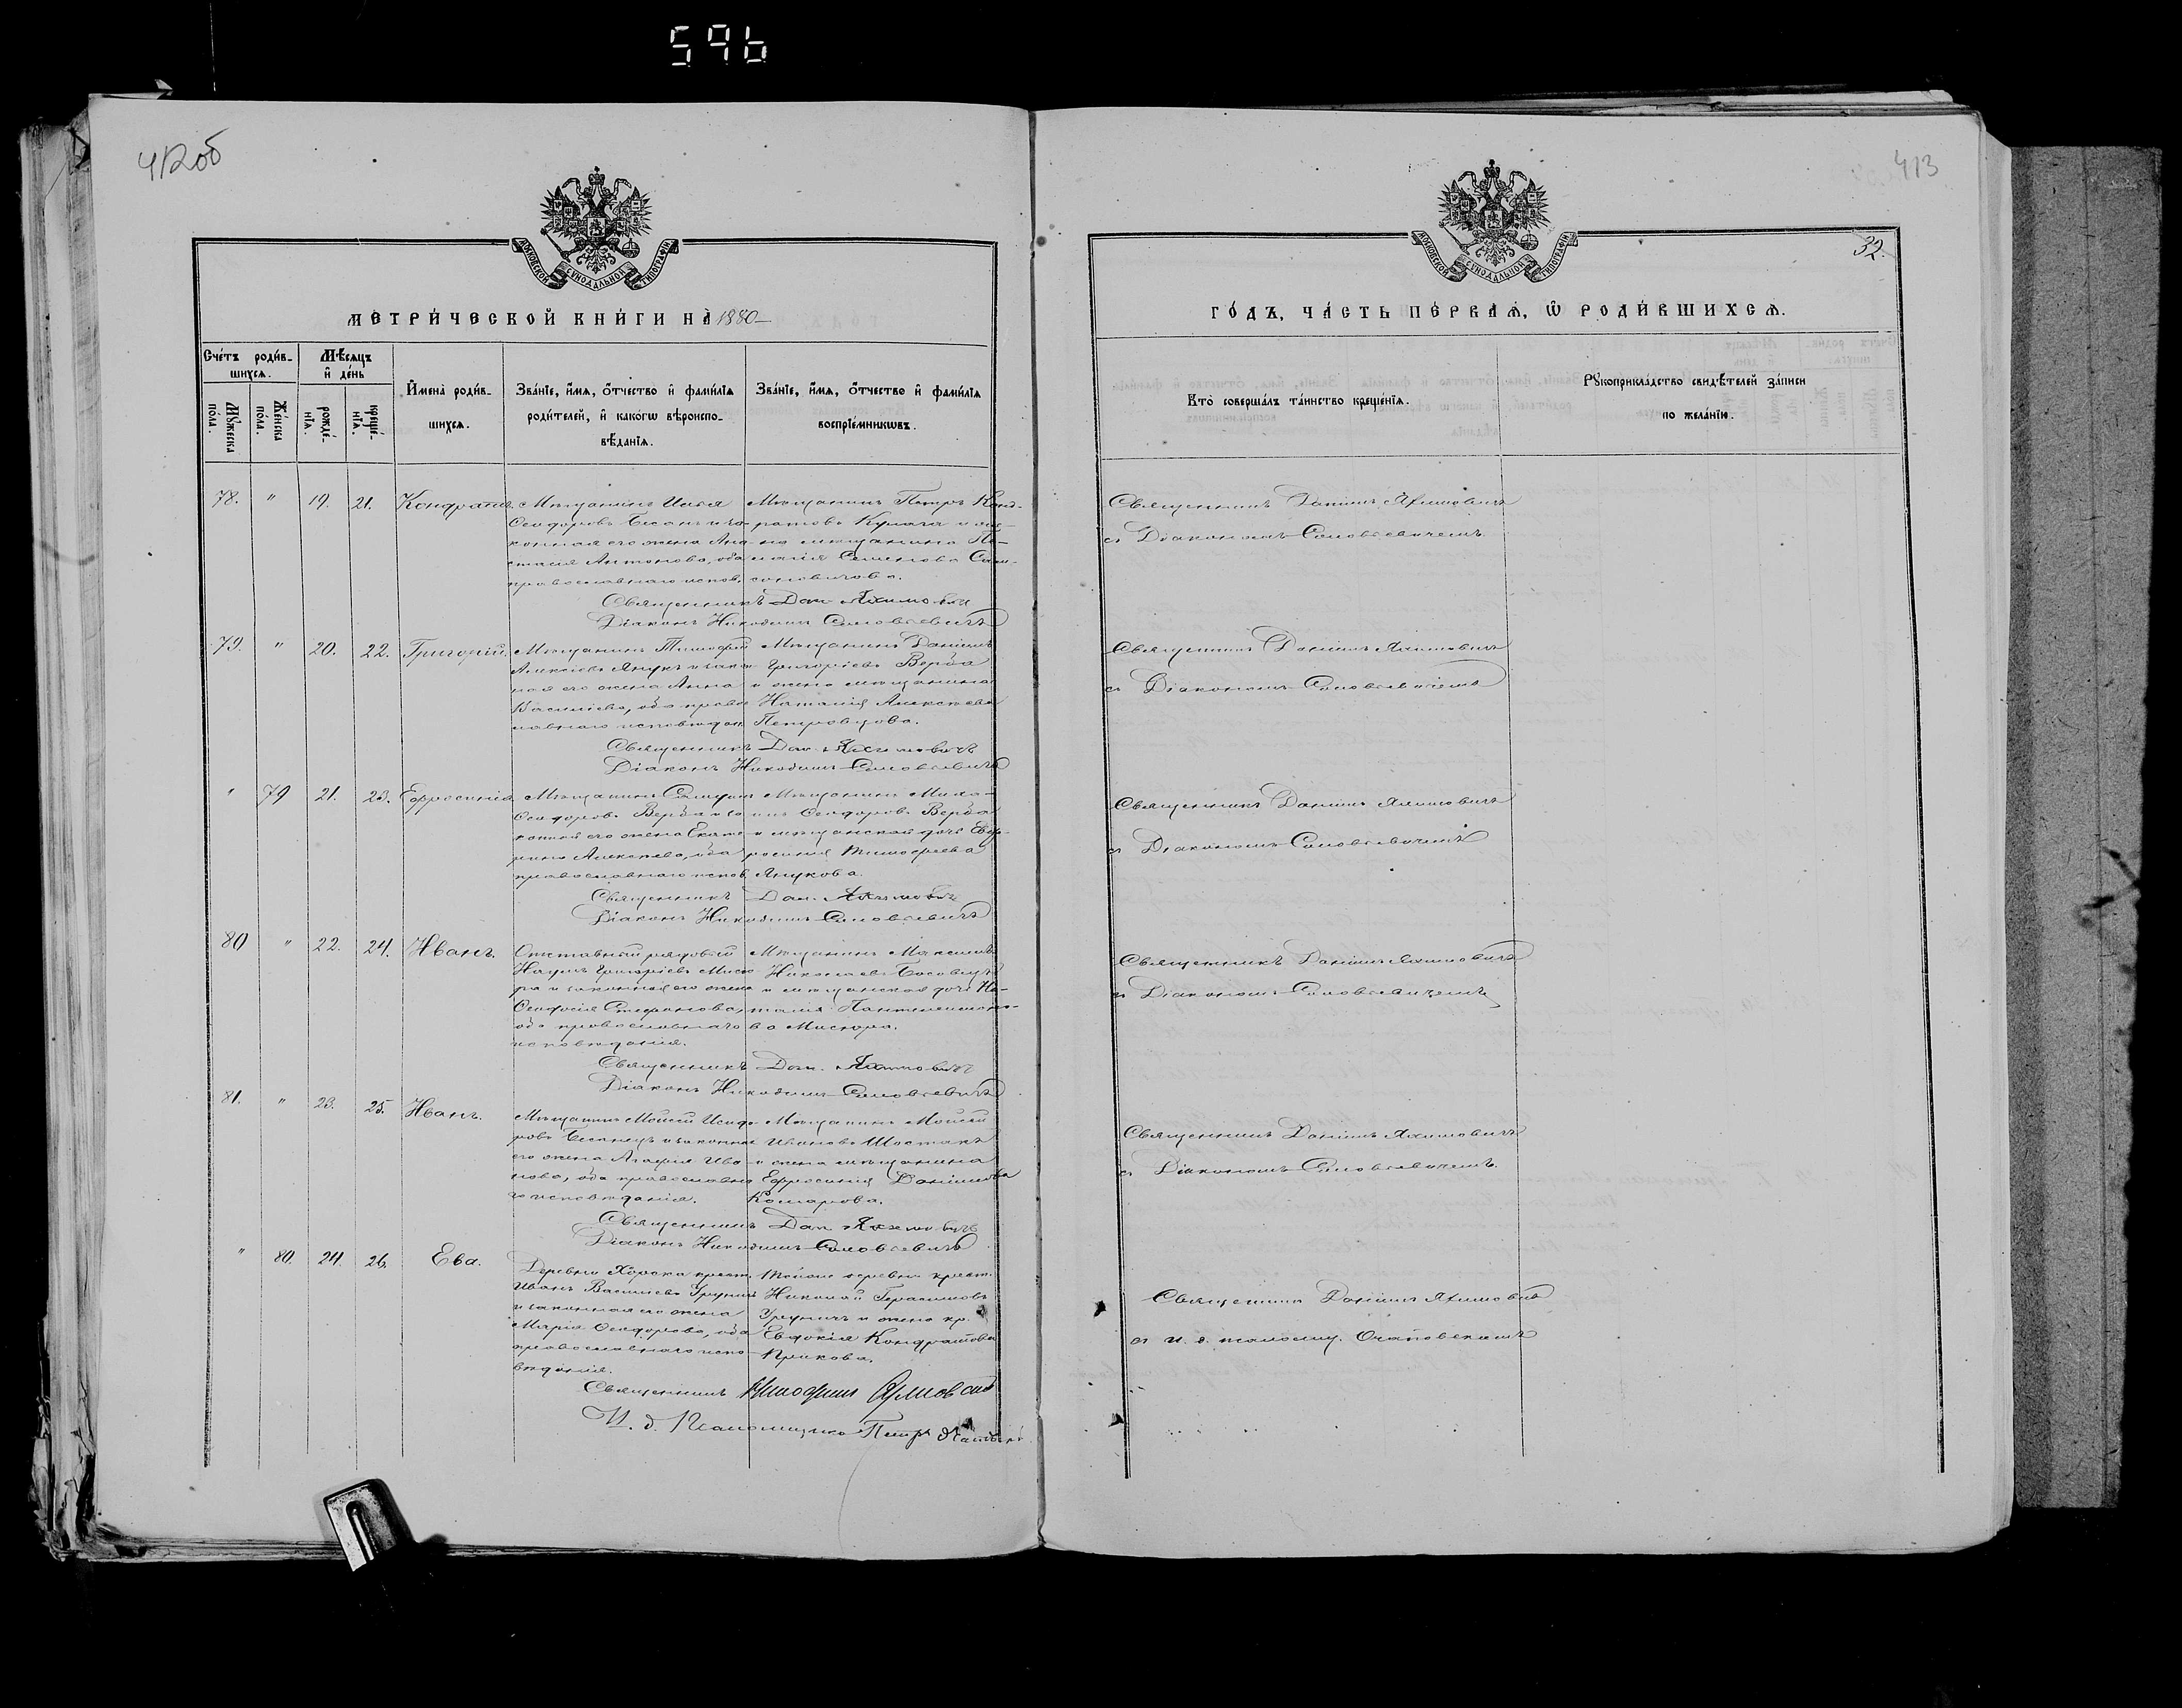 596
412об
МОСКОВСКОЙ СѴНОДАЛЬНОЙ ТИПОГРАФІИ
МЕТРИ́ЧЕСКОЙ КНИ́ГИ НА̀ 1880
Сче́тъ роди́в-
шихся.
Мѣ́сяцъ
и҆ де́нь
Мꙋ́жеска
по́ла.
Же́нска
по́ла.
рожде́-
нїя.
креще́-
нїя.
И҆мена̀ роди́в-
шихся.
Зва́нїе, и҆́мя, ѻ҆́тчество и҆ фами́лїя
роди́телей, и҆ како́гѡ вѣроиспо-
вѣ́данїя.
Зва́нїе, и҆́мя, ѻ҆́тчество и҆ фами́лїя
воспрїе́мникѡвъ.
78. " 19. 21. Кондратъ
Мѣщанинъ Илья
Ѳеодоровъ и за-
конная его жена Ана-
стасія Антонова, оба
православнаго испов.
Мѣщанинъ Петръ Конд-
ратовъ и же-
на мѣщанина Пе-
лагія Семенова Сам-
соновичова.
Священникъ Дан. Яхимовичъ
Діаконъ Никодимъ Соловьевичъ
79. " 20. 22. Григорій.
Мѣщанинъ Тимофей
Алексіевъ Янукъ и закон-
ная его жена Анна
Василіева, оба право-
славнаго исповѣдан.
Мѣщанинъ Даніилъ
Григоріевъ Верба
и жена мѣщанина
Наталія Алексѣева
Петровцова.
Священникъ Дан. Яхимовичъ
Діаконъ Никодимъ Соловьевичъ
" 79 21. 23. Ефросинія
Мѣщанинъ
Ѳеодоровъ Верба и за-
конная его жена Екате-
рина Алексѣева, оба
православнаго испов.
Мѣщанинъ Миха-
илъ Ѳеодоровъ Верба
и мѣщанская дочь Еф-
росинія Тимоѳеева
Янукова.
Священникъ Дан. Яхимовичъ
Діаконъ Никодимъ Соловьевичъ
80 " 22. 24. Иванъ.
Отставный рядовый
Наумъ Григоріевъ Мисю-
ра и законная его жена
Ѳеодосія Стефанова,
оба православнаго
исповѣданія.
Мѣщанинъ Максимъ
Николаевъ
и мѣщанская дочь На-
талія Пантелеимоно-
ва Мисюра.
Священникъ Дан. Яхимовичъ
Діаконъ Никодимъ Соловьевичъ
81. " 23. 25. Иванъ.
Мѣщанинъ Моисей Исидо-
ровъ и законная
его жена Агафія Ива-
нова, оба православна-
го исповѣданія.
Мѣщанинъ Моисей
Ивановъ Шостакъ
и жена мѣщанина
Ефросинія Даніилова
Комарова.
Священникъ Дан. Яхимовичъ
Діаконъ Никодимъ Соловьевичъ
" 80. 24. 26. Ева.
Деревни Хорска крест.
Иванъ Васильевъ
и законная его жена
Марія Ѳеодорова, оба
православнаго испо-
вѣданія.
Тойже деревни крест.
Николай Герасимовъ
и жена кр.
Евдокія Кондратова
Священникъ
И. д. Псаломщика Петръ
413
32.
МОСКОВСКОЙ СѴНОДАЛЬНОЙ ТИПОГРАФІИ
ГО́ДЪ, ЧА́СТЬ ПЕ́РВАЯ, Ѡ҆ РОДИ́ВШИХСЯ.
Кто̀ соверша́лъ та́инство креще́нїя.
Рꙋкоприкла́дство свидѣ́телей за́писи
по жела́нїю.
Священникъ Даніилъ Яхимовичъ
съ Діакономъ Соловьевичемъ.
Священникъ Даніилъ Яхимовичъ
съ Діакономъ Соловьевичемъ
Священникъ Даніилъ Яхимовичъ
съ Діакономъ Соловьевичемъ
Священникъ Даніилъ Яхимовичъ
съ Діакономъ Соловьевичемъ
Священникъ Даніилъ Яхимовичъ
съ Діакономъ Соловьевичемъ.
Священникъ Даніилъ Яхимовичъ
съ и. д.